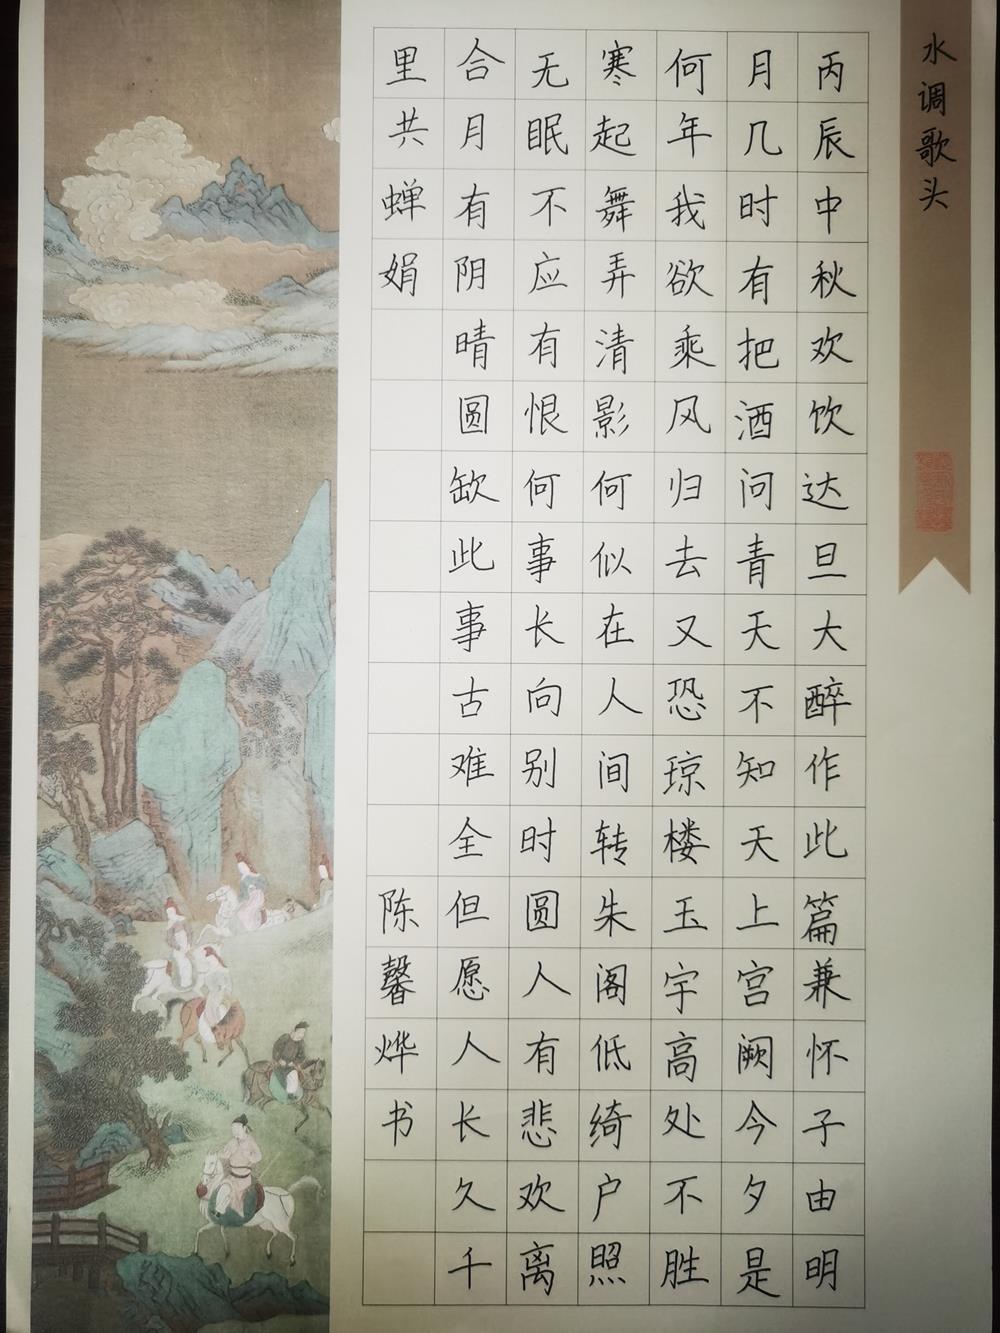 水调歌头
丙辰中秋欢饮达旦大醉作此篇兼怀子由明
月几时有把酒问青天不知天上宫阙今夕是
何年我欲乘风归去又恐琼楼玉宇高处不胜
寒起舞弄清影何似在人间转朱阁低绮户照
无眠不应有恨何事长向别时圆人有悲欢离
合月有阴晴圆缺此事古难全但愿人长久千
里共蝉娟陈馨烨书